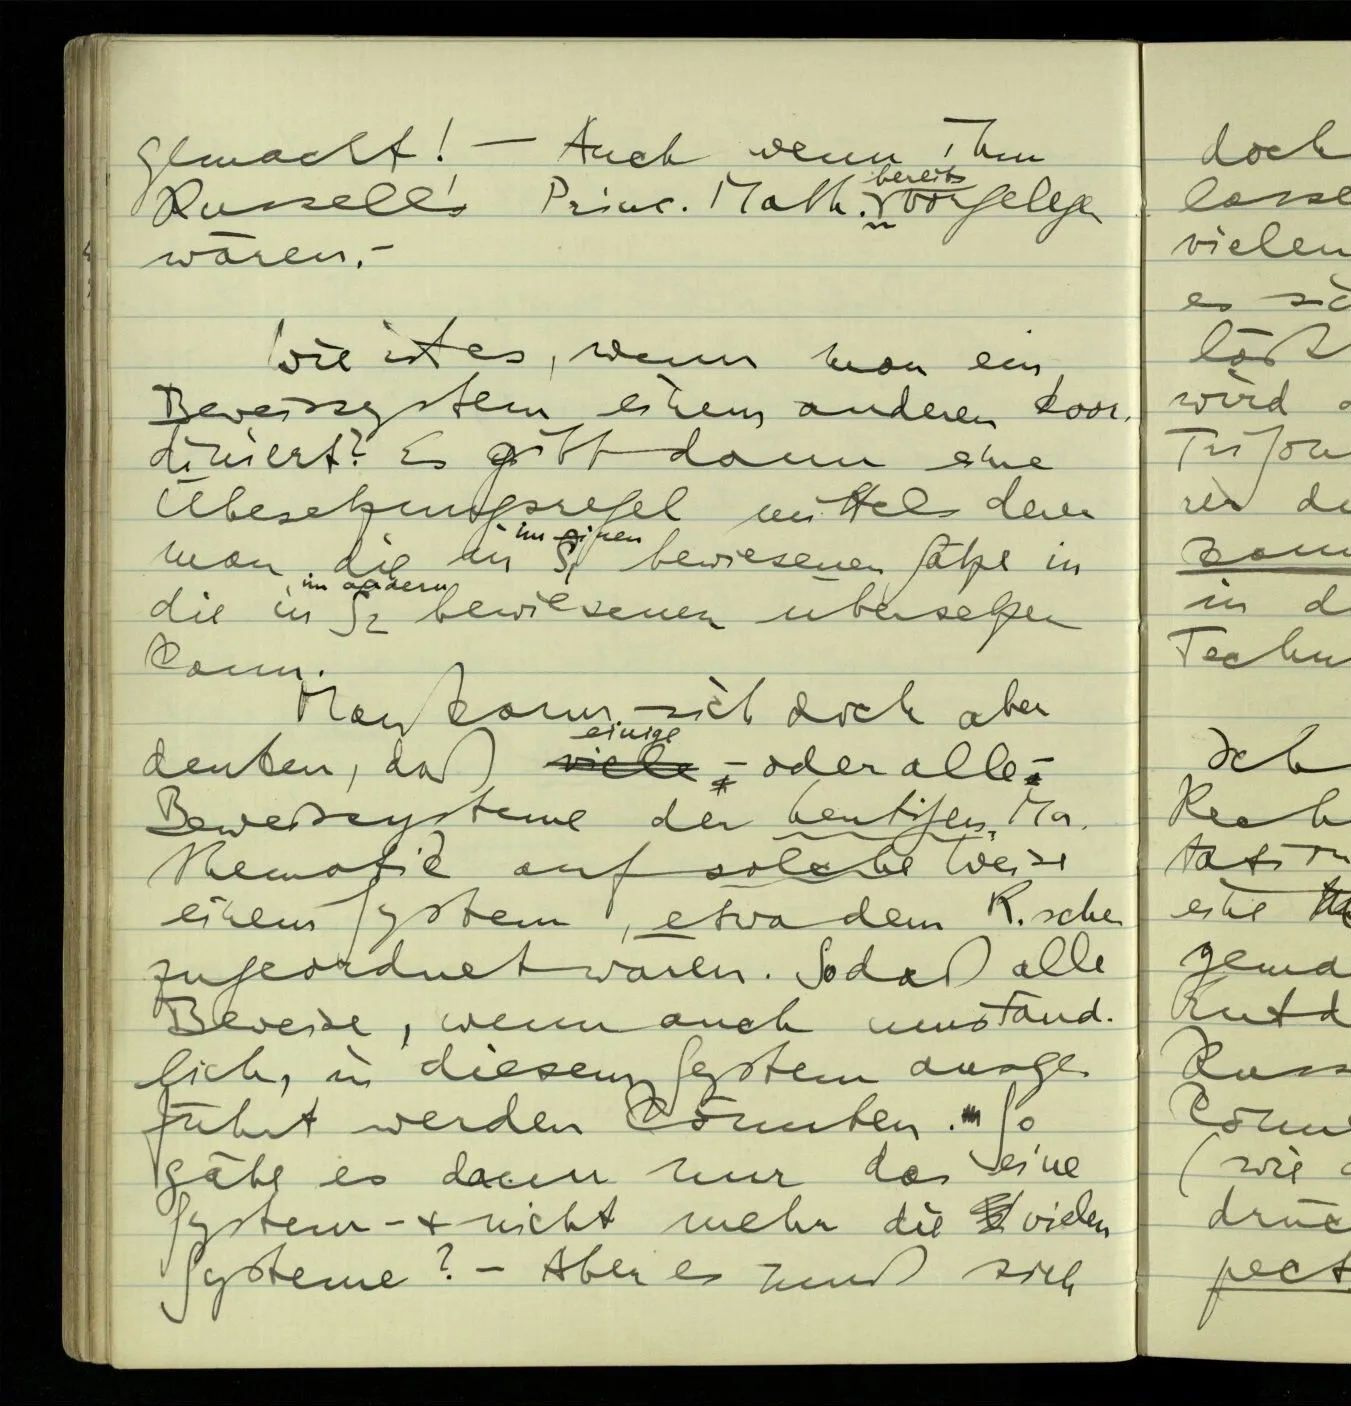 gemacht! — Auch wenn ihm
bereits
Russell's Princ. Math. vorgelegen
wären. –
Wie ist es, wenn man ein
Beweissystem einem anderen koor-
diniert? Es gibt dann eine
Übesetzungsregel mittels derer
im einen
man die in S1 bewiesenen Sätze in
im andern
die in S2 bewiesenen übersetzen
kann.
Man kann sich doch aber
einige
denken, daß viele – oder alle –
Beweissysteme der heutigen Ma-
thematik auf solche Weise
einem System, etwa dem R.schen
zugeordnet wären. Sodaß alle
Beweise, wenn auch umständ-
lich, in diesem System ausge-
führt werden könnten. So
gäbe es dann nur das eine
System – + nicht mehr die vielen
Systeme? – Aber es muß sich
doch
lasse
vielen
es
läßt
wird
in d
Techn
Ich
Rech
tation
eine
gema
Russ
könn
(wie
drück